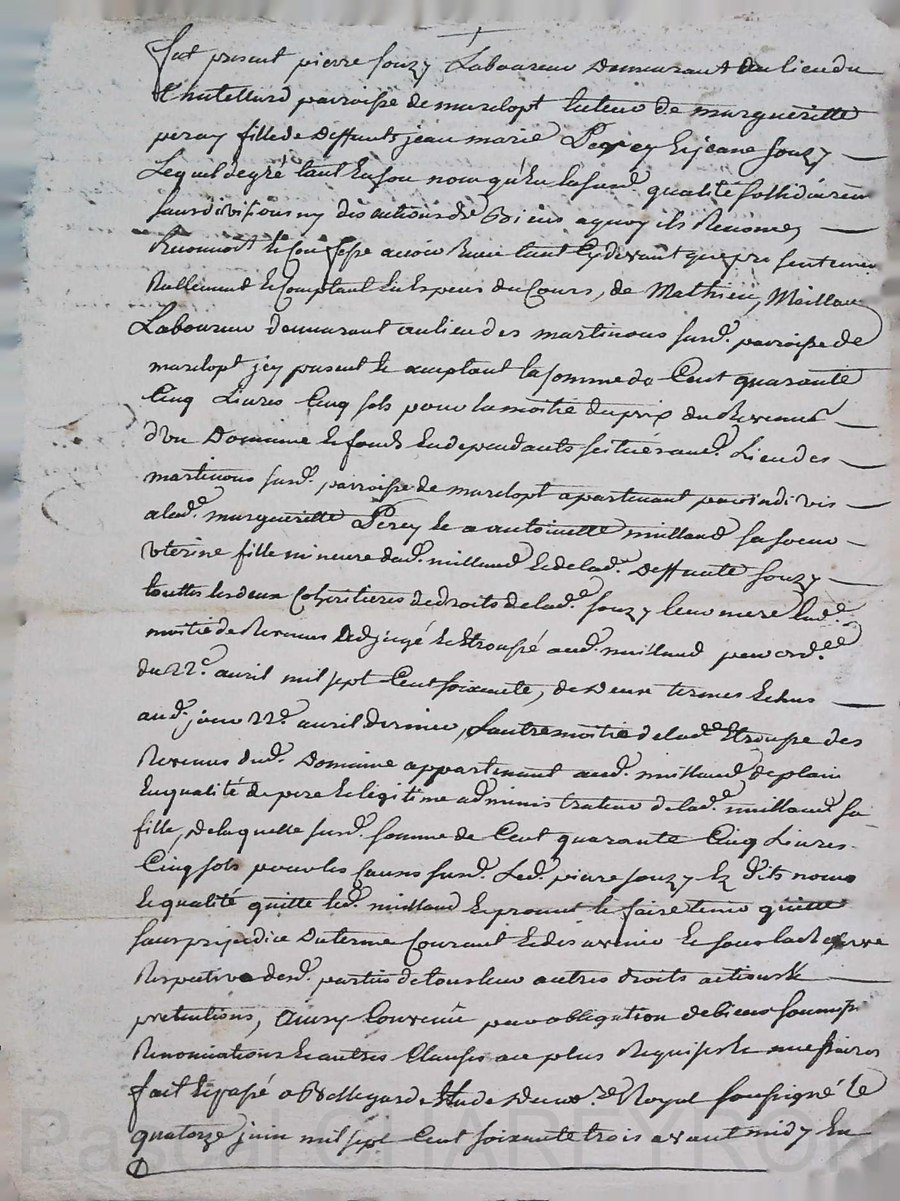 fut present pierre souzy Laboureur Demeurant au lieu du
Chatellard parroisse de marclopt tuteur de margueritte
peray fille de Deffunts jean marie Perey et jeane souzy
Lequel de gré tant en son nom qu'en lasusd. qualité sollidairem
sans division ny discution de Biens a quoy ils Renonce
Reconnoit et confesse avoir Receu tant cy devant que presentement
Reellement et comptant en Especes du Cours, de Mathieu Maillaud
Laboureur demeurant au lieu des martinons susd. parroisse de
marclopt icy present et acceptant la somme de Cent quarante
Cinq Livres Cinq sols pour la moitié du prix du Revenu
d'un Domaine et fonds en dependants scitués aud. Lieu des
martinons susd. parroisse de marclopt apartenant par indivis
a lad. margueritte Perey et a antoinette maillaud sa soeur
uterine fille mineure dud. maillaud et de lad. Deffunte Souzy
touttes les deux Coheritieres de droits de lad. Souzy leur mere lad.
moitié de Revenus adjugé et Etroussé aud. maillaud par ord.
du 22e. avril mil sept Cent soixante, de deux termes Echus
aud. jour 22e. avril dernier, L'autre moitié de lad. Etrousse des
Revenus dud. Domaine appartenant aud. maillaud de plain
En qualité de pere et legitime administrateur de lad. maillaud sa
fille, de laquelle susd. somme de Cent quarante Cinq Livres
Cinq sols pour les causes susd. Led. pierre souzy Ez d. noms
et qualité quitte led. maillaud et promet le faire tenir quitte
sans prejudice du terme Courant et des a venir et sous la Reserve
Respective desd. parties de tous leur autres droits actions et
pretentions, Ainsy Convenu par obligation de biens soumiss.
Renonciations et autres Clauses au plus Requises et necessaires
fait et passé a Bellegard Etude Du no.re Royal soussigné le
quatorze juin mil sept Cent soixante trois avant midy En
Pascal CHAREYRON